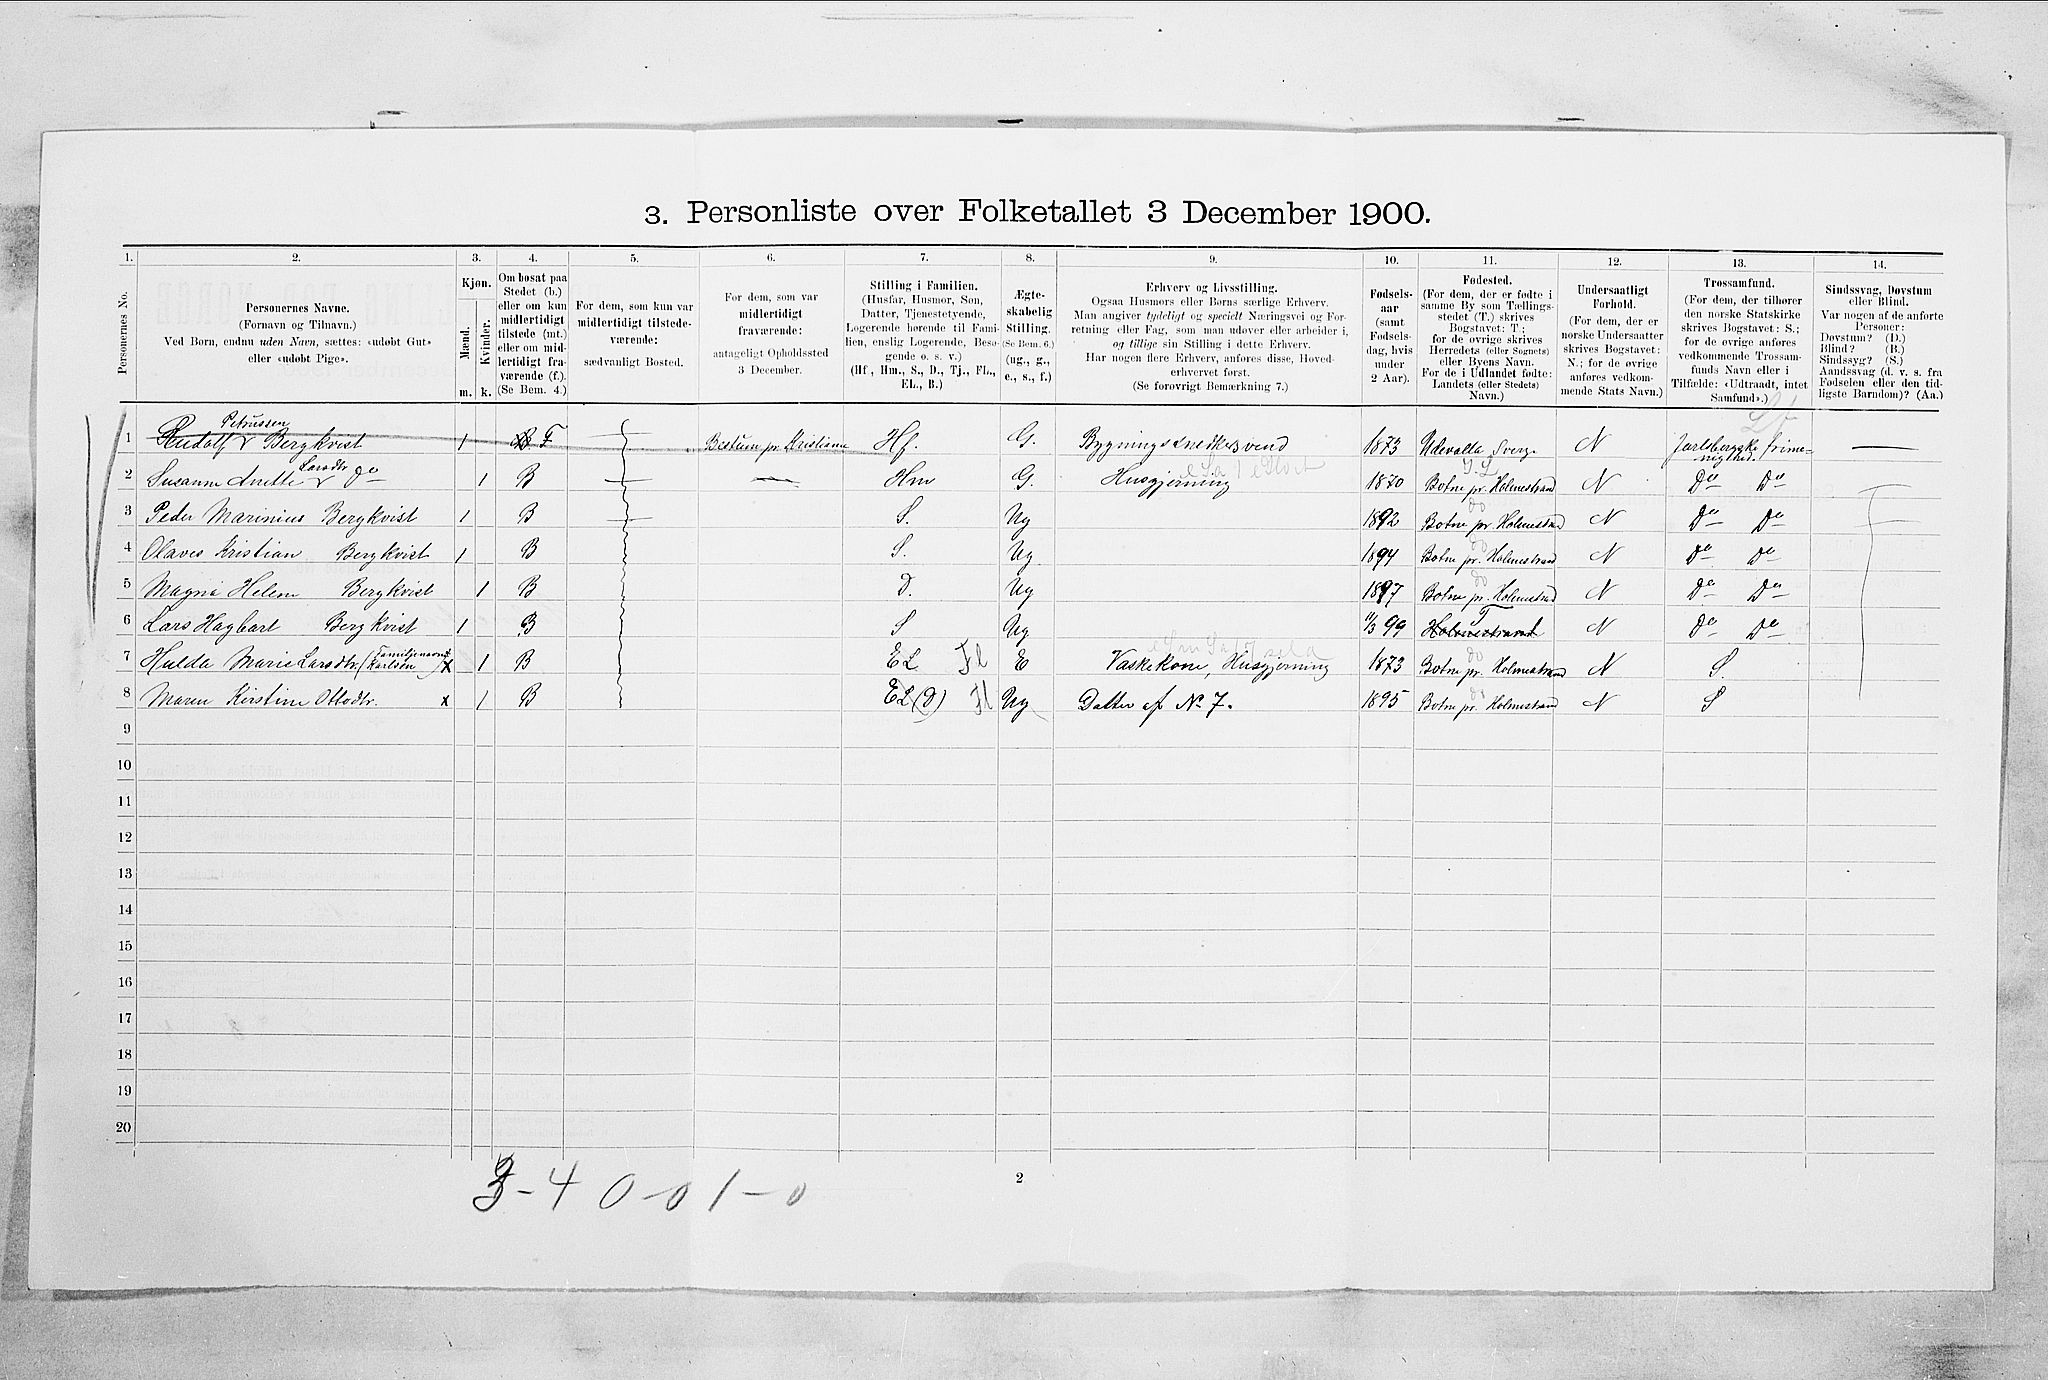 3. Personliste over Folketallet 3 December 1900.
1. 2. 3. 4. 5. 6. 7. 8. 9. 10. 11. 12. 13. 14.
Personernes No.
Personernes Navne.
(Fornavn og Tilnavn.)
Ved Børn, endnu uden Navn, sættes: «udøbt Gut»
eller «udøbt Pige».
Kjøn.
Mænd.
Kvinder.
m. k.
Om bosat paa
Stedet (b.)
eller om kun
midlertidigt
tilstede (mt.)
eller om mid-
lertidigt fra-
værende (f.).
(Se Bem. 4.)
For dem, som kun var
midlertidigt tilstede-
værende:
sædvanligt Bosted.
For dem, som var
midlertidigt
fraværende:
antageligt Opholdssted
3 December.
Stilling i Familien.
(Husfar, Husmor, Søn,
Datter, Tjenestetyende,
Logerende hørende til Fami-
lien, enslig Logerende, Besø-
gende o. s. v.)
(Hf., Hm., S., D., Tj., FL.,
EL., B.)
Ægte-
skabelig
Stilling.
(Se Bem. 6.)
(ug., g.,
e., s., f.)
Erhverv og Livsstilling.
Ogsaa Husmors eller Børns særlige Erhverv.
Man angiver tydeligt og specielt Næringsvei og For-
retning eller Fag, som man udøver eller arbeider i,
og tillige sin Stilling i dette Erhverv.
Har nogen flere Erhverv, anføres disse, Hoved-
erhvervet først.
(Se forøvrigt Bemærkning 7.)
Fødsels-
aar
(samt
Fødsels-
dag, hvis
under
2 Aar).
Fødested.
(For dem, der er fødte i
samme By som Tællings-
stedet (T.) skrives
Bogstavet: T.;
for de øvrige skrives
Herredets (eller Sognets)
eller Byens Navn.
For de i Udlandet fødte:
Landets (eller Stedets)
Navn.)
Undersaatligt
Forhold.
(For dem, der er
norske Undersaatter
skrives Bogstavet:
N.; for de øvrige
anføres vedkom-
mende Stats Navn.)
Trossamfund.
(For dem, der tilhører
den norske Statskirke
skrives Bogstavet: S.;
for de øvrige anføres
vedkommende Trossam-
funds Navn eller i
Tilfælde: «Udtraadt, intet
Samfund».)
Sindssvag, Døvstum
eller Blind.
Var nogen af de anførte
Personer:
Døvstum? (D.)
Blind? (B.)
Sindssyg? (S.)
Aandssvag (d. v. s. fra
Fødselen eller den tid-
ligste Barndom)? (Aa.)
Petrussen
1 Rudolf Bergkvist 1 F Bestum pr. Kristiania Hf. G. Bygningssnedkersvend 1873 Udevalla Sverg. N Jarlsbergske frime-
nighed.
Larsdtr
2 Susanne Anette Do 1 B Hm G. Husgjerning 1870 Botne pr. Holmestrand N Do Do
3 Peder Marinius Bergkvist 1 B S. Ug 1892 Botne pr. Holmestrand N Do Do
4 Olaves Kristian Bergkvist 1 B S. Ug 1894 Botne pr. Holmestrand N Do Do
5 Magna Helene Bergkvist 1 B D. Ug 1897 Botne pr. Holmestrand N Do Do
6 Lars Hagbart Bergkvist 1 B S Ug 11/3 99 Holmestrand T N Do Do
7 Hulda Marie Larsdtr. (Familjenavn Karlsen) x 1 B EL Fl E Vaskekone, Husgjerning 1873 Botne pr. Holmestrand N S.
8 Maren Kirstine Ottodtr. x 1 B EL (D) Fl Ug Datter af No 7. 1895 Botne pr. Holmestrand N S
9
10
11
12
13
14
15
16
17
18
19
20
3-4 0-0 1-0
2